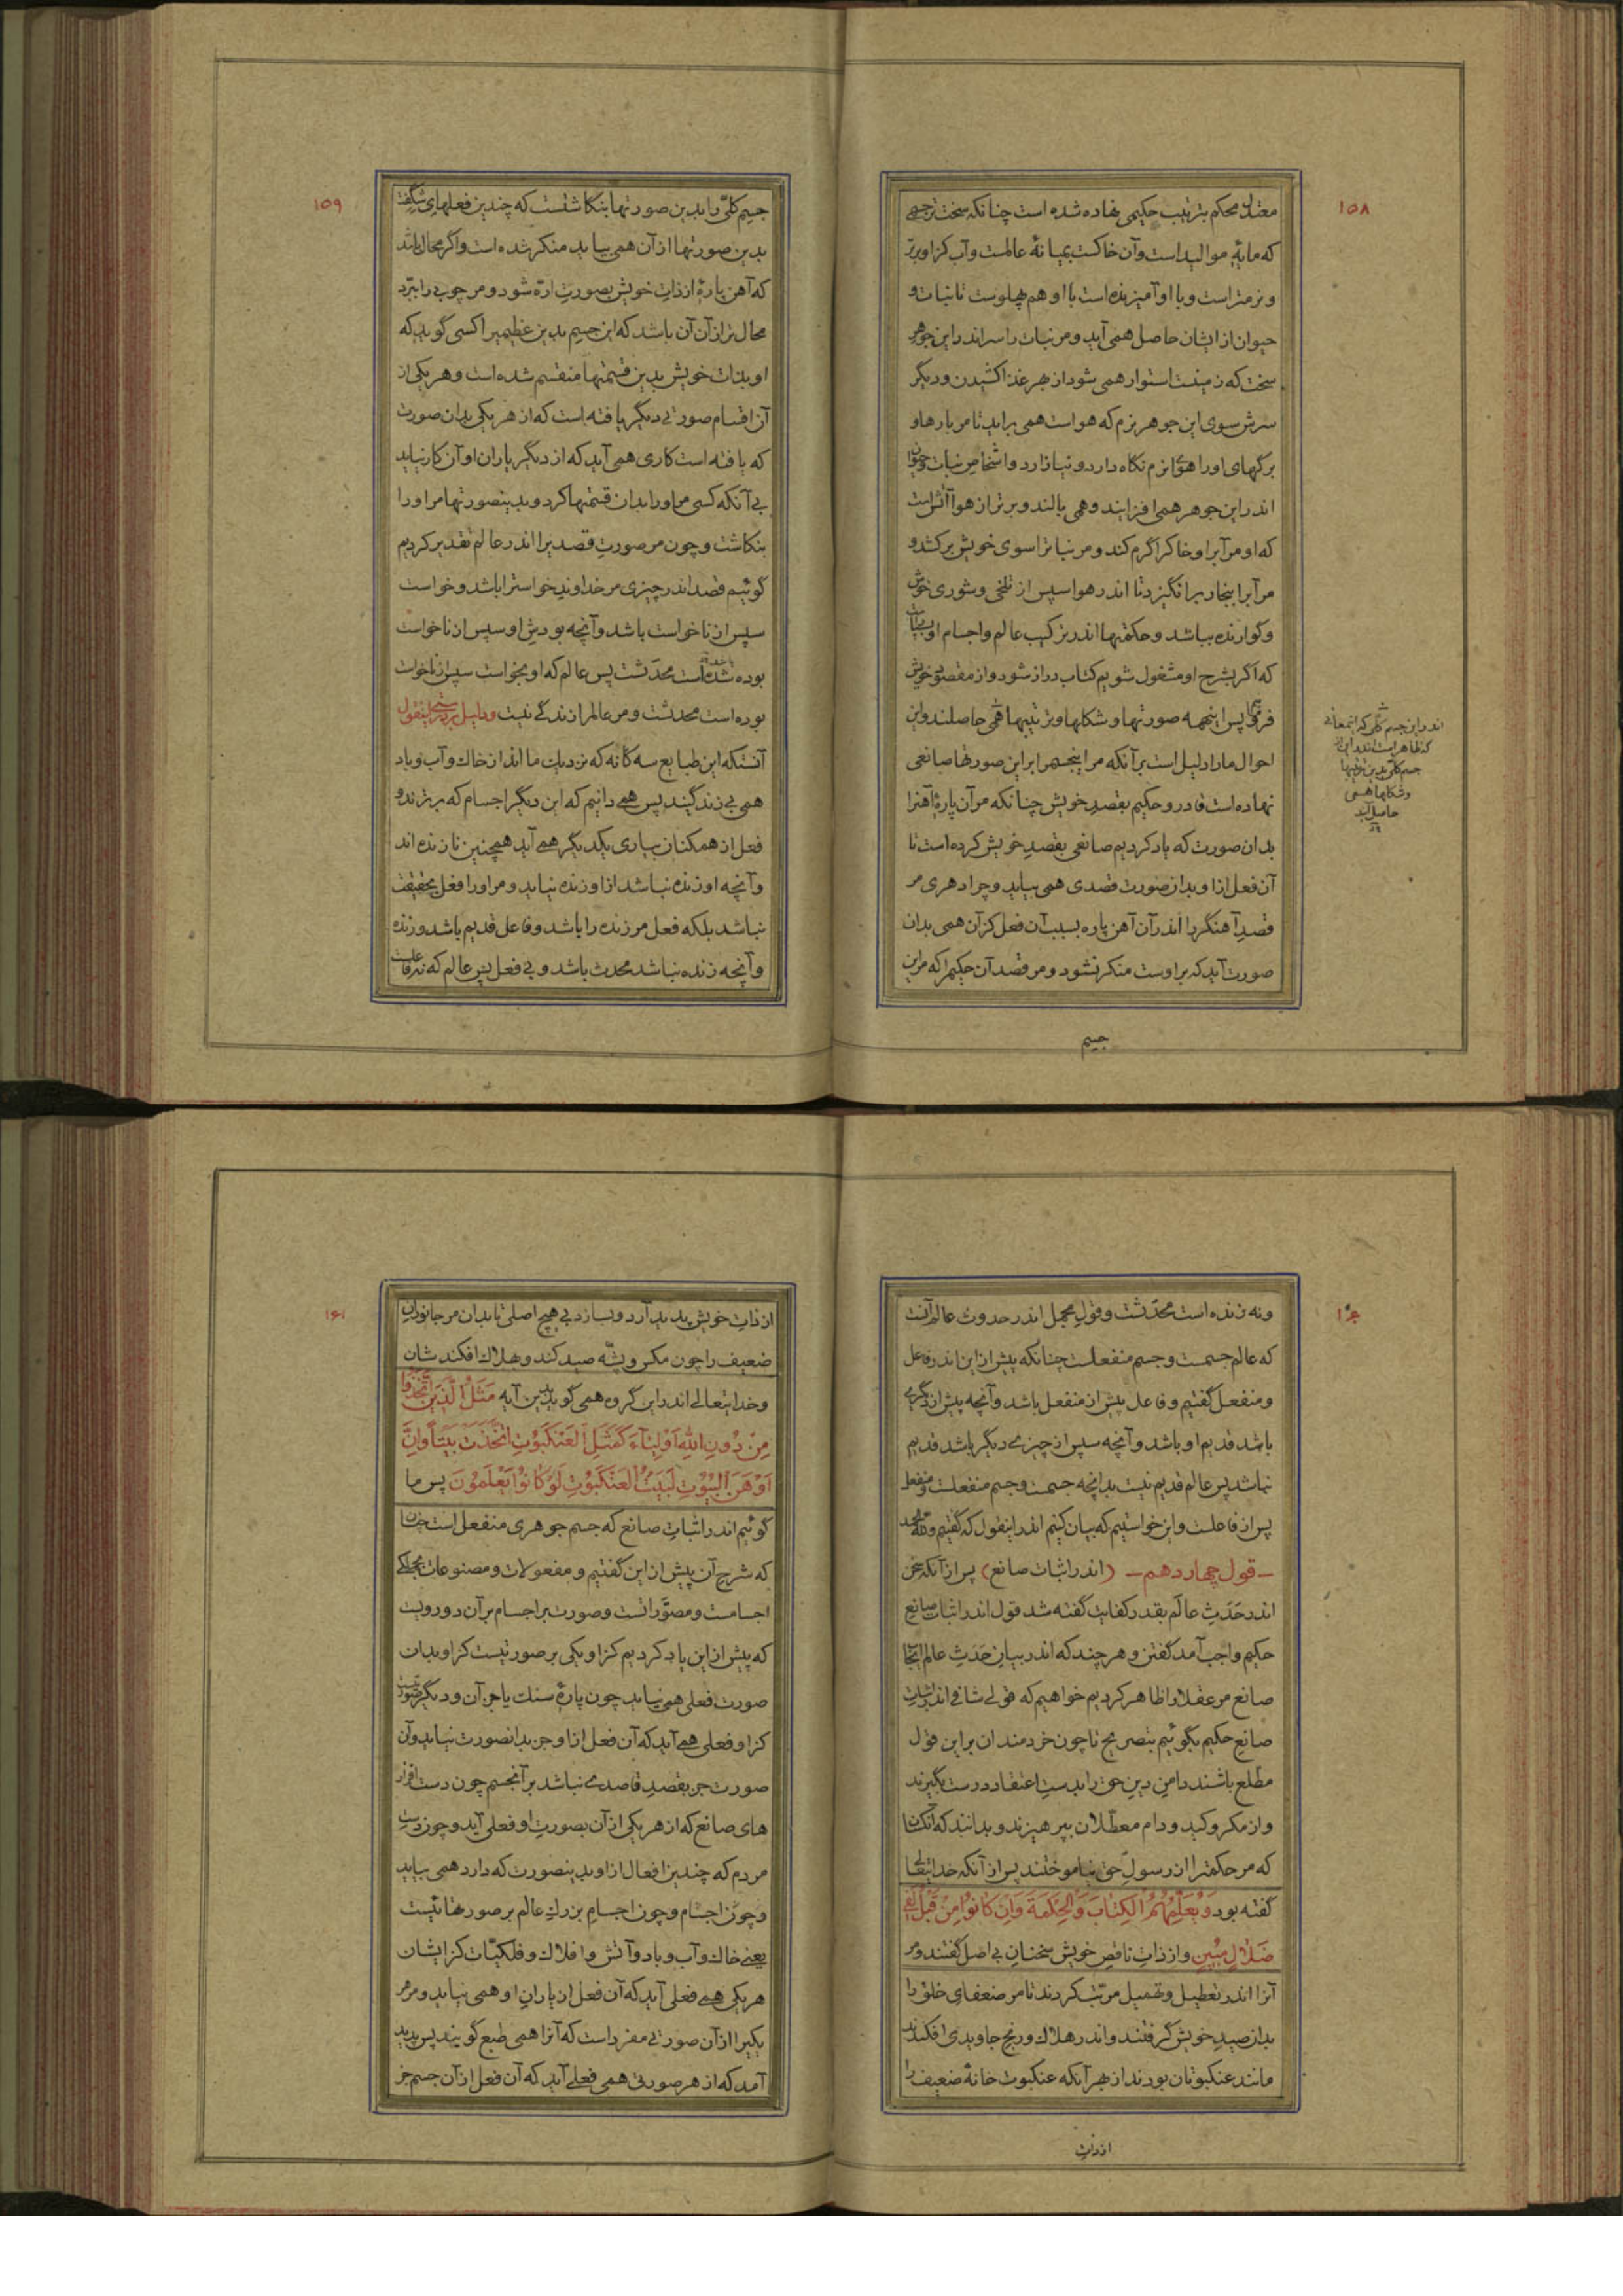 ۱۵۸
معتدل محکم بترتیب حکیمی نهاده شده است چنانکه سخت‌تر جسمی
که مایهٔ موالید است و آن خاکست بمیانهٔ عالمست و آب کزاو برتر
و نرمتر است و با او آمیزنده است با او هم پهلوست تا نبات و
حیوان از ایشان حاصل همی آید و مر نبات را سر اندر این جوهر
سخت که زمینست استوار همی شود از بهر غذا کشیدن و دیگر
سرش سوی این جوهر نرم که هواست همی براید تا مر بارها و
برگهای او را هوای نرم نگاه دارد و نیازارد و اشخاص نبات و حیوان
اندر این جوهر همی افزایند و همی بالند و برتر از هوا آتش است
که او مر آبرا و خاکرا گرم کند و مر نباترا سوی خویش برکشد و
مر آبرا ببخار برانگیزد تا اندر هوا سپس از تلخی و شوری خوش
و گوارنده بباشد و حکمتها اندر ترکیب عالم و اجسام او بسیار است
که اگر بشرح او مشغول شویم کتاب دراز شود و از مقصود خویش
فرو مانیم پس اینهمه صورتها و شکلها و ترتیبها همی حاصلند و این
احوال ما را دلیل است بر آنکه مر اینجسمرا بر این صورتها صانعی
نهاده است قادر و حکیم بقصد خویش چنانکه مر آن پارهٔ آهنرا
بدان صورت که یاد کردیم صانعی بقصد خویش کرده است تا
آن فعل از او بدان صورت قصدی همی بیاید و چرا دهری مر
قصد آهنگر را اندر آن آهن پاره بسبب آن فعل کز آن همی بدان
صورت آید که بر اوست منکر نشود و مر قصد آن حکیمرا که مر این
جسم
اندر این جسم کلی که اینمعانی
که ظاهر است اندر این از
جسم کلی بدین ترتیبها
و شکلها همی
حاصل آید
۱۵۹
جسم کلیّ را بدین صورتها بنگاشتست که چندین فعلهای شگفت
بدین صورتها از آن همی بیاید منکر شده است و اگر محال باشد
که آهن پارهٔ از ذات خویش بصورت ارّه شود و مر چوب را ببرّد
محال‌تر از آن آن باشد که این جسم بدین عظیمیرا کسی گوید که
او بذات خویش بدین قسمتها منقسم شده است و هر یکی از
آن اقسام صورتی دیگر یافته است که از هر یکی بدان صورت
که یافته است کاری همی آید که از دیگر یاران او آن کار نیاید
بی آنکه کسی مر او را بدان قسمتها کرد و بدینصورتها مر او را
بنگاشت و چون مر صورت قصدیرا اندر عالم تقدیر کردیم
گوئیم قصد اندر چیزی مر خداوند خواسترا باشد و خواست
سپس از ناخواست باشد و آنچه بودش او سپس از ناخواست
بوده شده است محدَثست پس عالم که او بخواست سپس از ناخواست
بوده است محدثست و مر عالمرا زندگی نیست و دلیل بر درستی اینقول
آنستکه این طبایع سه گانه که نزدیک ما اند از خاک و آب و باد
همی بی زندگیند پس همی دانیم که این دیگر اجسام که برترند و
فعل از همگنان بیاری یکدیگر همی آید همچنین نازنده اند
و آنچه او زنده نباشد از او زنده نیاید و مر او را فعل بحقیقت
نباشد بلکه فعل مر زنده را باشد و فاعل قدیم باشد و زنده
و آنچه زنده نباشد محدث باشد و بی فعل پس عالم که نه فاعلست
و نه زنده است محدَثست و قول مجمل اندر حدوث عالم آنست
که عالم جسمست و جسم منفعلست چنانکه پیش از این اندر فاعل
و منفعل گفتیم و فاعل پیش از منفعل باشد و آنچه پیش از دیگری
باشد قدیم او باشد و آنچه سپس از چیزی دیگر باشد قدیم
نباشد پس عالم قدیم نیست بدانچه جسمست و جسم منفعلست و منفعل
پس از فاعلست و این خواستیم که بیان کنیم اندر اینقول که گفتیم و لله الحمد
– قول چهاردهم – (اندر اثبات صانع) پس از آنکه سخن
اندر حَدَث عالَم بقدر کفایت گفته شد قول اندر اثبات صانع
حکیم واجب آمد گفتن و هر چند که اندر بیان حَدَث عالم اثبات
صانع مر عقلا را ظاهر کردیم خواهیم که قولی شافی اندر اثبات
صانع حکیم بگوئیم بتصریح تا چون خردمندان بر این قول
مطلع باشند دامن دین حق را بدست اعتقاد درست بگیرند
و از مکر و کید و دام معطّلان بپرهیزند و بدانند که آنکسان
که مر حکمترا از رسول حق نیاموختند پس از آنکه خدایتعالی
گفته بود وَیُعَلِّمُهُمُ الْکِتَابَ وَالْحِکْمَةَ وَإِنْ کَانُوا مِنْ قَبْلُ لَفِی
ضَلَالٍ مُبِینٍ و از ذات ناقص خویش سخنان بی اصل گفتند و مر
آنرا اندر تعطیل و تهمیل مرتّب کردند تا مر ضعفای خلق را
بدان صید خویش گرفتند و اندر هلاک و رنج جاویدی افکندند
مانند عنکبوتان بودند از بهر آنکه عنکبوت خانهٔ ضعیف را
از ذات
۱۶۱
از ذات خویش پدید آرد و بسازد بی هیچ اصلی تا بدان مر جانوران
ضعیف را چون مگس و پشّه صید کند و بهلاک افکندشان
و خدایتعالی اندر این گروه همی گوید بدین آیه مَثَلُ الَّذِینَ اتَّخَذُوا
مِنْ دُونِ اللهِ أَوْلِیَاءَ کَمَثَلِ الْعَنْکَبُوتِ اتَّخَذَتْ بَیْتًا وَإِنَّ
أَوْهَنَ الْبُیُوتِ لَبَیْتُ الْعَنْکَبُوتِ لَوْ کَانُوا یَعْلَمُونَ پس ما
گوئیم اندر اثبات صانع که جسم جوهری منفعل است چنان
که شرح آن پیش از این گفتیم و مفعولات و مصنوعات بجملگی
اجسامست و مصوَّراتست و صورت بر اجسام بر آن دو رویست
که پیش از این یاد کردیم کزاو یکی بر صورتیست کزاو بدان
صورت فعلی همی نیاید چون پارهٔ سنگ یا جز آن و دیگر صورتیست
کزاو فعلی همی آید که آن فعل از او جز بدانصورت نیاید و آن
صورت جز بقصد قاصدی نباشد بر آنجسم چون دست افزار
های صانع که از هر یکی از آن بصورت او فعلی آید و چون دست
مردم که چندین افعال از او بدینصورت که دارد همی بیاید
و چون اجسام و چون اجسام بزرگ عالم بر صورتهائیست
یعنی خاک و آب و باد و آتش و افلاک و فلکیّات کز ایشان
هر یکی همی فعلی آید که آن فعل از یاران او همی نیاید و مر هر
یکیرا از آن صورتی مفرد است که آنرا همی طبع گویند پس پدید
آمد که از هر صورتی همی فعلی آید که آن فعل از آن جسم جز